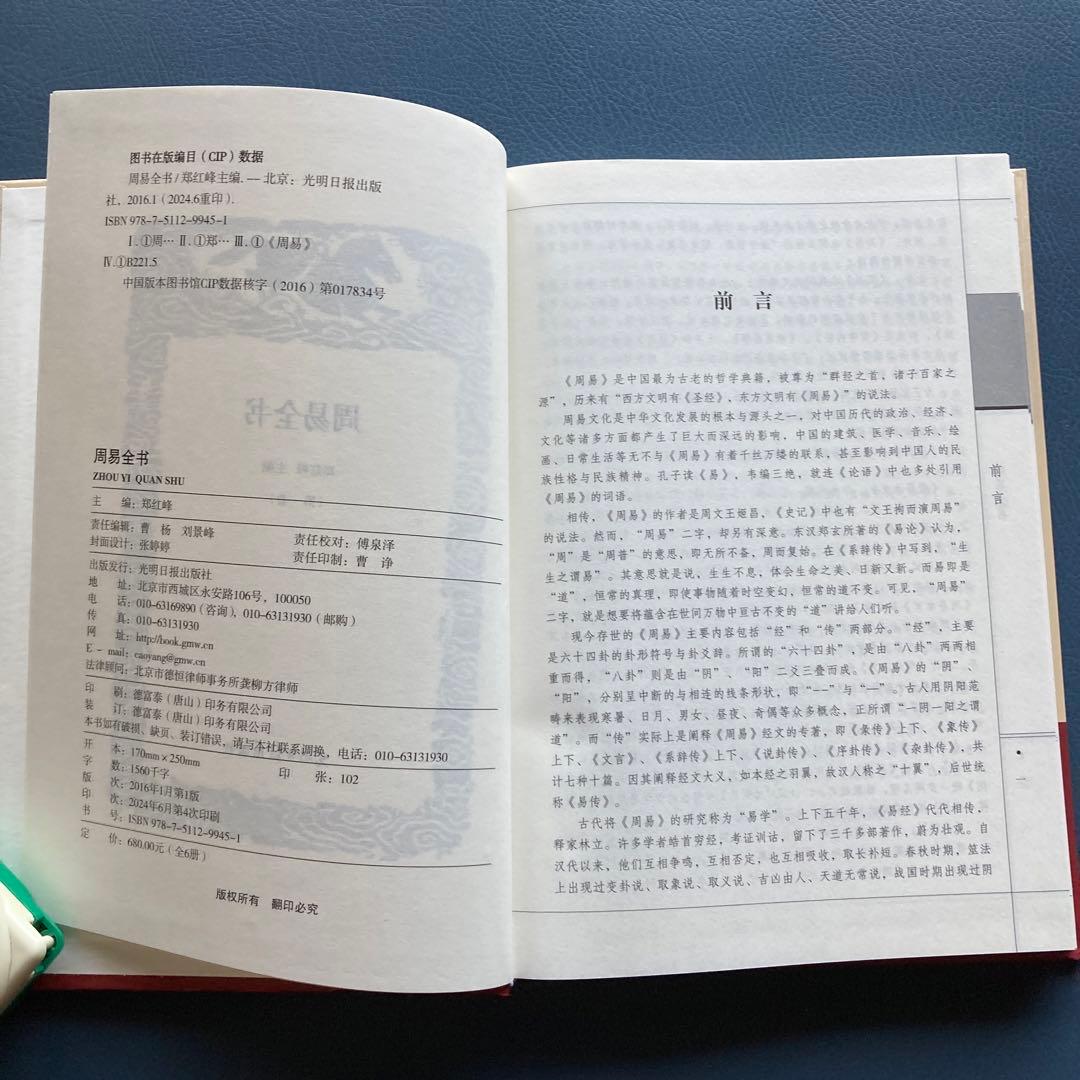 图书在版编目(CIP)数据
周易全书/郑红峰主编. — 北京：光明日报出版
社，2016.1(2024.6重印).
ISBN 978-7-5112-9945-1
Ⅰ.①周… Ⅱ.①郑… Ⅲ.①《周易》
Ⅳ.①B221.5
中国版本图书馆CIP数据核字(2016)第017834号
周易全书
ZHOU YI QUAN SHU
主 编：郑红峰
责任编辑：曹 杨 刘景峰 责任校对：傅泉泽
封面设计：张婷婷 责任印制：曹 诤
出版发行：光明日报出版社
地 址：北京市西城区永安路106号，100050
电 话：010-63169890(咨询)，010-63131930(邮购)
传 真：010-63131930
网 址：http://book.gmw.cn
E - mail：caoyang@gmw.cn
法律顾问：北京市德恒律师事务所龚柳方律师
印 刷：德富泰(唐山)印务有限公司
装 订：德富泰(唐山)印务有限公司
本书如有破损、缺页、装订错误，请与本社联系调换，电话：010-63131930
开 本：170mm×250mm
字 数：1560千字 印 张：102
版 次：2016年1月第1版
印 次：2024年6月第4次印刷
书 号：ISBN 978-7-5112-9945-1
定 价：680.00元(全6册)
版权所有 翻印必究
前 言
《周易》是中国最为古老的哲学典籍，被尊为“群经之首，诸子百家之
源”，历来有“西方文明有《圣经》、东方文明有《周易》”的说法。
周易文化是中华文化发展的根本与源头之一，对中国历代的政治、经济、
文化等诸多方面都产生了巨大而深远的影响，中国的建筑、医学、音乐、绘
画、日常生活等无不与《周易》有着千丝万缕的联系，甚至影响到中国人的民
族性格与民族精神。孔子读《易》，韦编三绝，就连《论语》中也多处引用
《周易》的词语。
相传，《周易》的作者是周文王姬昌，《史记》中也有“文王拘而演周易”
的说法。然而，“周易”二字，却另有深意。东汉郑玄所著的《易论》认为，
“周”是“周普”的意思，即无所不备，周而复始。在《系辞传》中写到，“生
生之谓易”。其意思就是说，生生不息，体会生命之美、日新又新。而易即是
“道”，恒常的真理，即使事物随着时空变幻，恒常的道不变。可见，“周易”
二字，就是想要将蕴含在世间万物中亘古不变的“道”讲给人们听。
现今存世的《周易》主要内容包括“经”和“传”两部分。“经”，主要
是六十四卦的卦形符号与卦爻辞。所谓的“六十四卦”，是由“八卦”两两相
重而得，“八卦”则是由“阴”、“阳”二爻三叠而成。《周易》的“阴”、
“阳”，分别呈中断的与相连的线条形状，即“--”与“—”。古人用阴阳范
畴来表现寒暑、日月、男女、昼夜、奇偶等众多概念，正所谓“一阴一阳之谓
道”。而“传”实际上是阐释《周易》经文的专著，即《彖传》上下、《象传》
上下、《文言》、《系辞传》上下、《说卦传》、《序卦传》、《杂卦传》，共
计七种十篇。因其阐释经文大义，如本经之羽翼，故汉人称之“十翼”，后世统
称《易传》。
古代将《周易》的研究称为“易学”。上下五千年，《易经》代代相传，
释家林立。许多学者皓首穷经，考证训诂，留下了三千多部著作，蔚为壮观。自
汉代以来，他们互相争鸣，互相否定，也互相吸收，取长补短。春秋时期，筮法
上出现过变卦说、取象说、取义说、吉凶由人、天道无常说，战国时期出现过阴
前言
一